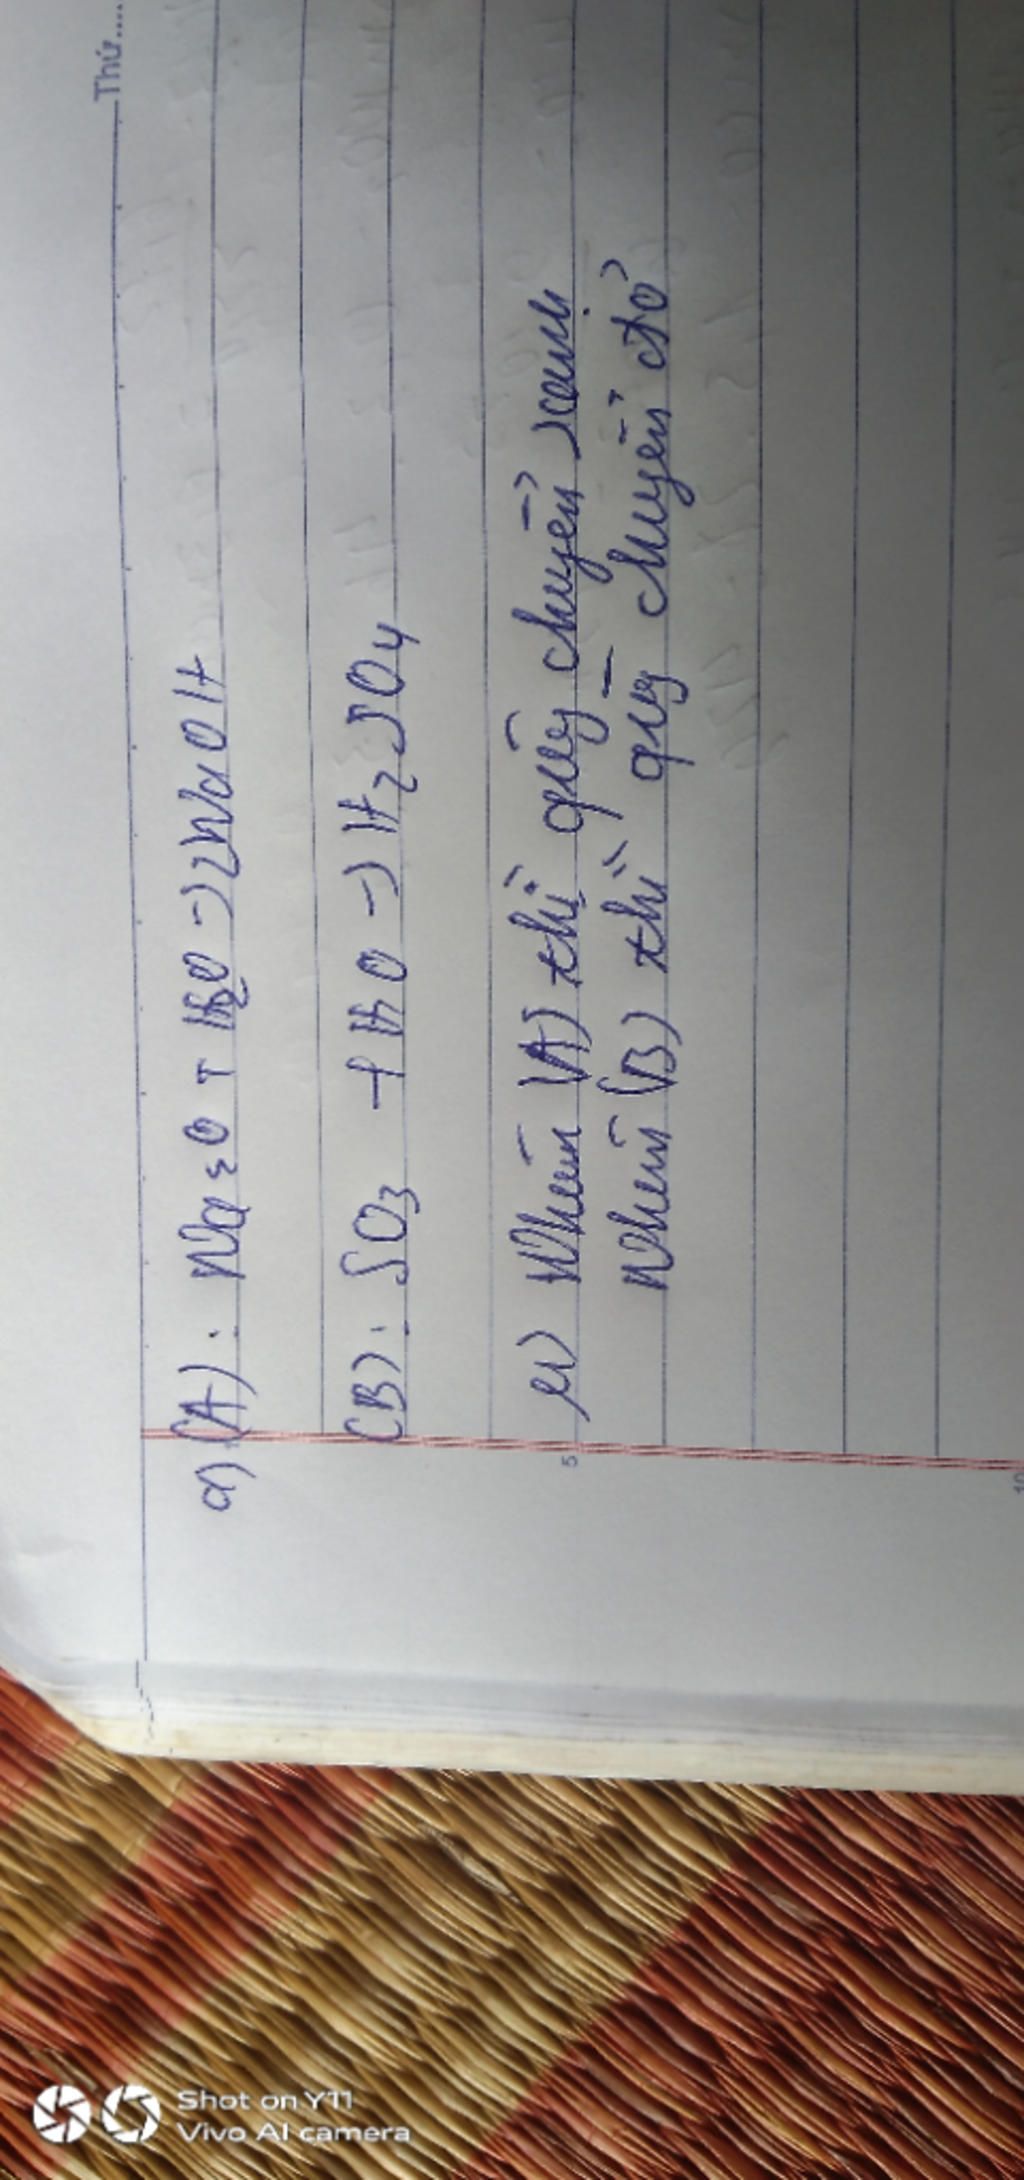 Thứ....
a) (A): Na2O + H2O -> 2NaOH
(B): SO3 + H2O -> H2SO4
Nhúng (A) thì quỳ chuyển xanh
Nhúng (B) thì quỳ chuyển đỏ
5
10
Shot on Y11
Vivo AI camera